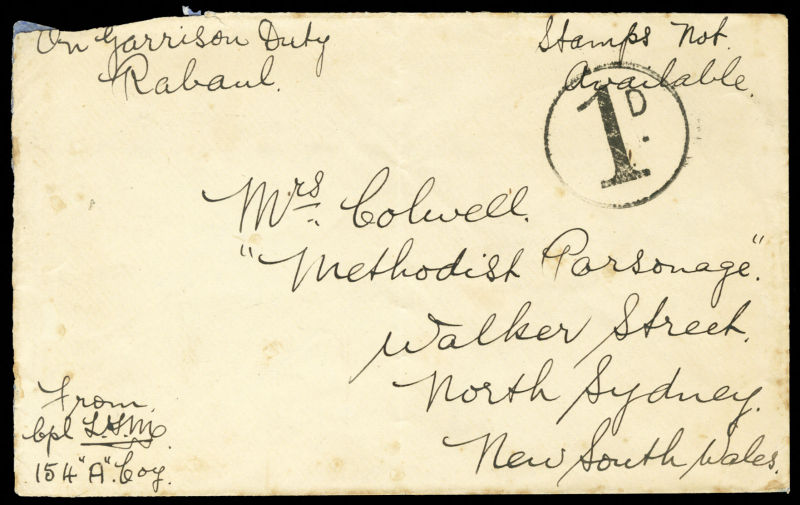 On Garrison Duty
Rabaul.
Stamps Not
Available.
1D.
Mrs. Colwell.
"Methodist Parsonage".
Walker Street.
North Sydney.
New South Wales.
From
Cpl
154 "A" Coy.